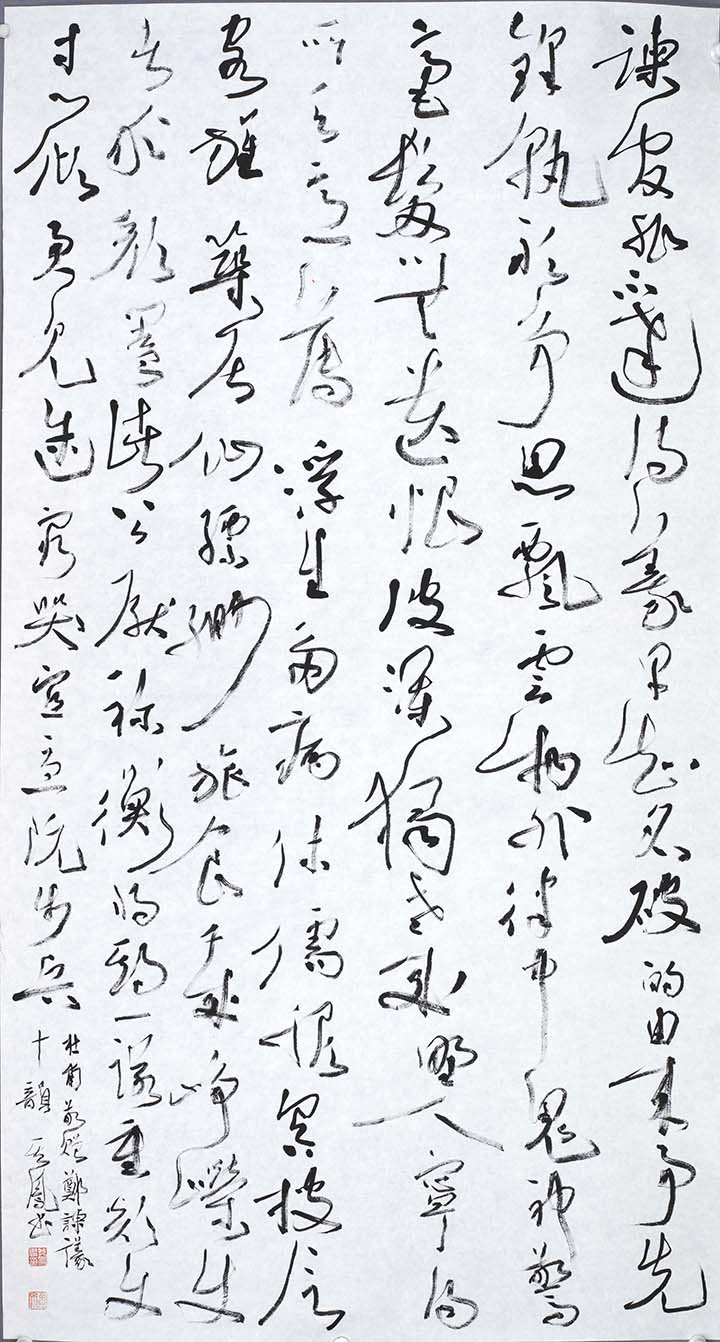 諫官非不達詩義早知名破的由來事先
鋒孰敢爭思飄雲物外律中鬼神驚
毫髮無遺恨波瀾獨老成野人寧得
所天意薄浮生多病休儒服冥搜信
客旌築居仙縹緲旅食歲崢嶸使
者求顏闔諸公厭禰衡將期一諾重歘使
寸心傾君見途窮哭宜憂阮步兵
杜甫敬贈鄭諫議
十韻 鳳書